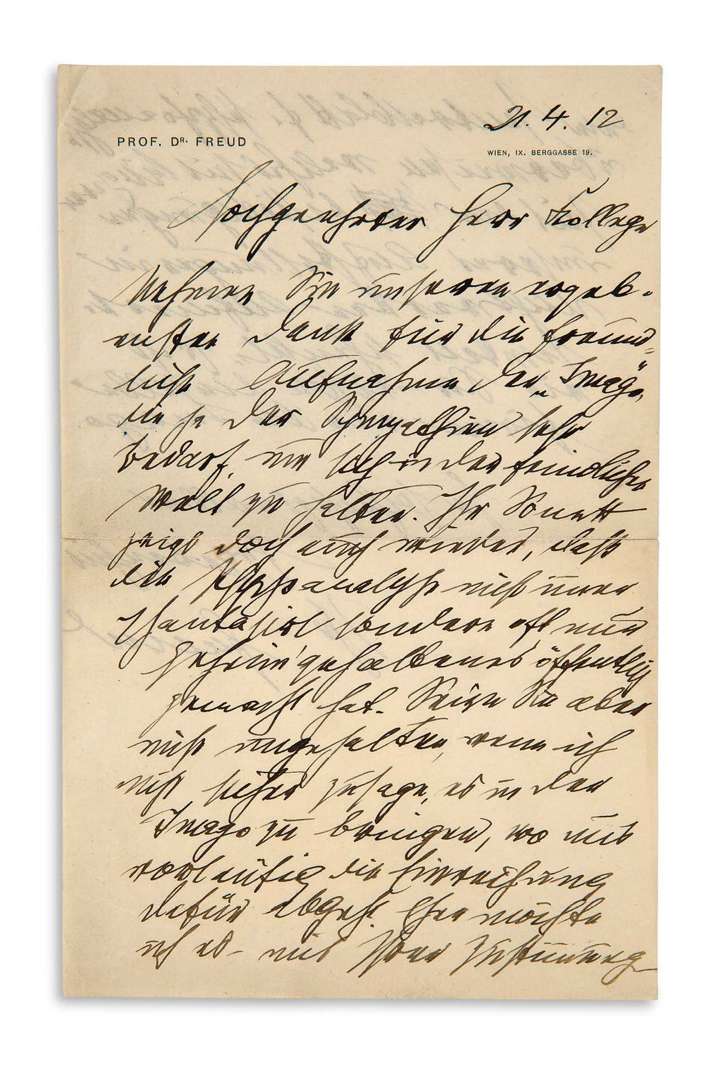 21. 4. 12
PROF. DR. FREUD
WIEN, IX. BERGGASSE 19.
Hochgeehrter Herr Kollege
Nehmen Sie unseren ergeb-
ensten Dank für die freund-
liche Aufnahme der „Imago“
die ja der Sympathien sehr
bedarf, um sich in der feindlichen
Welt zu halten. Ihr Sonett
zeigt doch auch wieder, daß
die Psychoanalyse nicht immer
phantasirt sondern oft nur
geheimgehaltenes öffentlich
gemacht hat. Seien Sie aber
nicht ungehalten, wenn ich
nicht sicher zusage, es in der
Imago zu bringen, wo uns
vorläufig die Einreihung
dafür abgeht. Eher möchte
ich es mit Ihrer Zustimmung